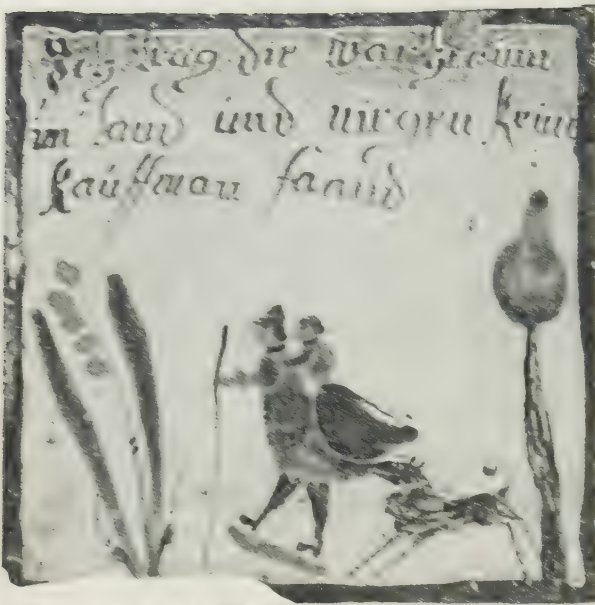 Ich trag die war herum
im land und nirgen kein
kauffman faand